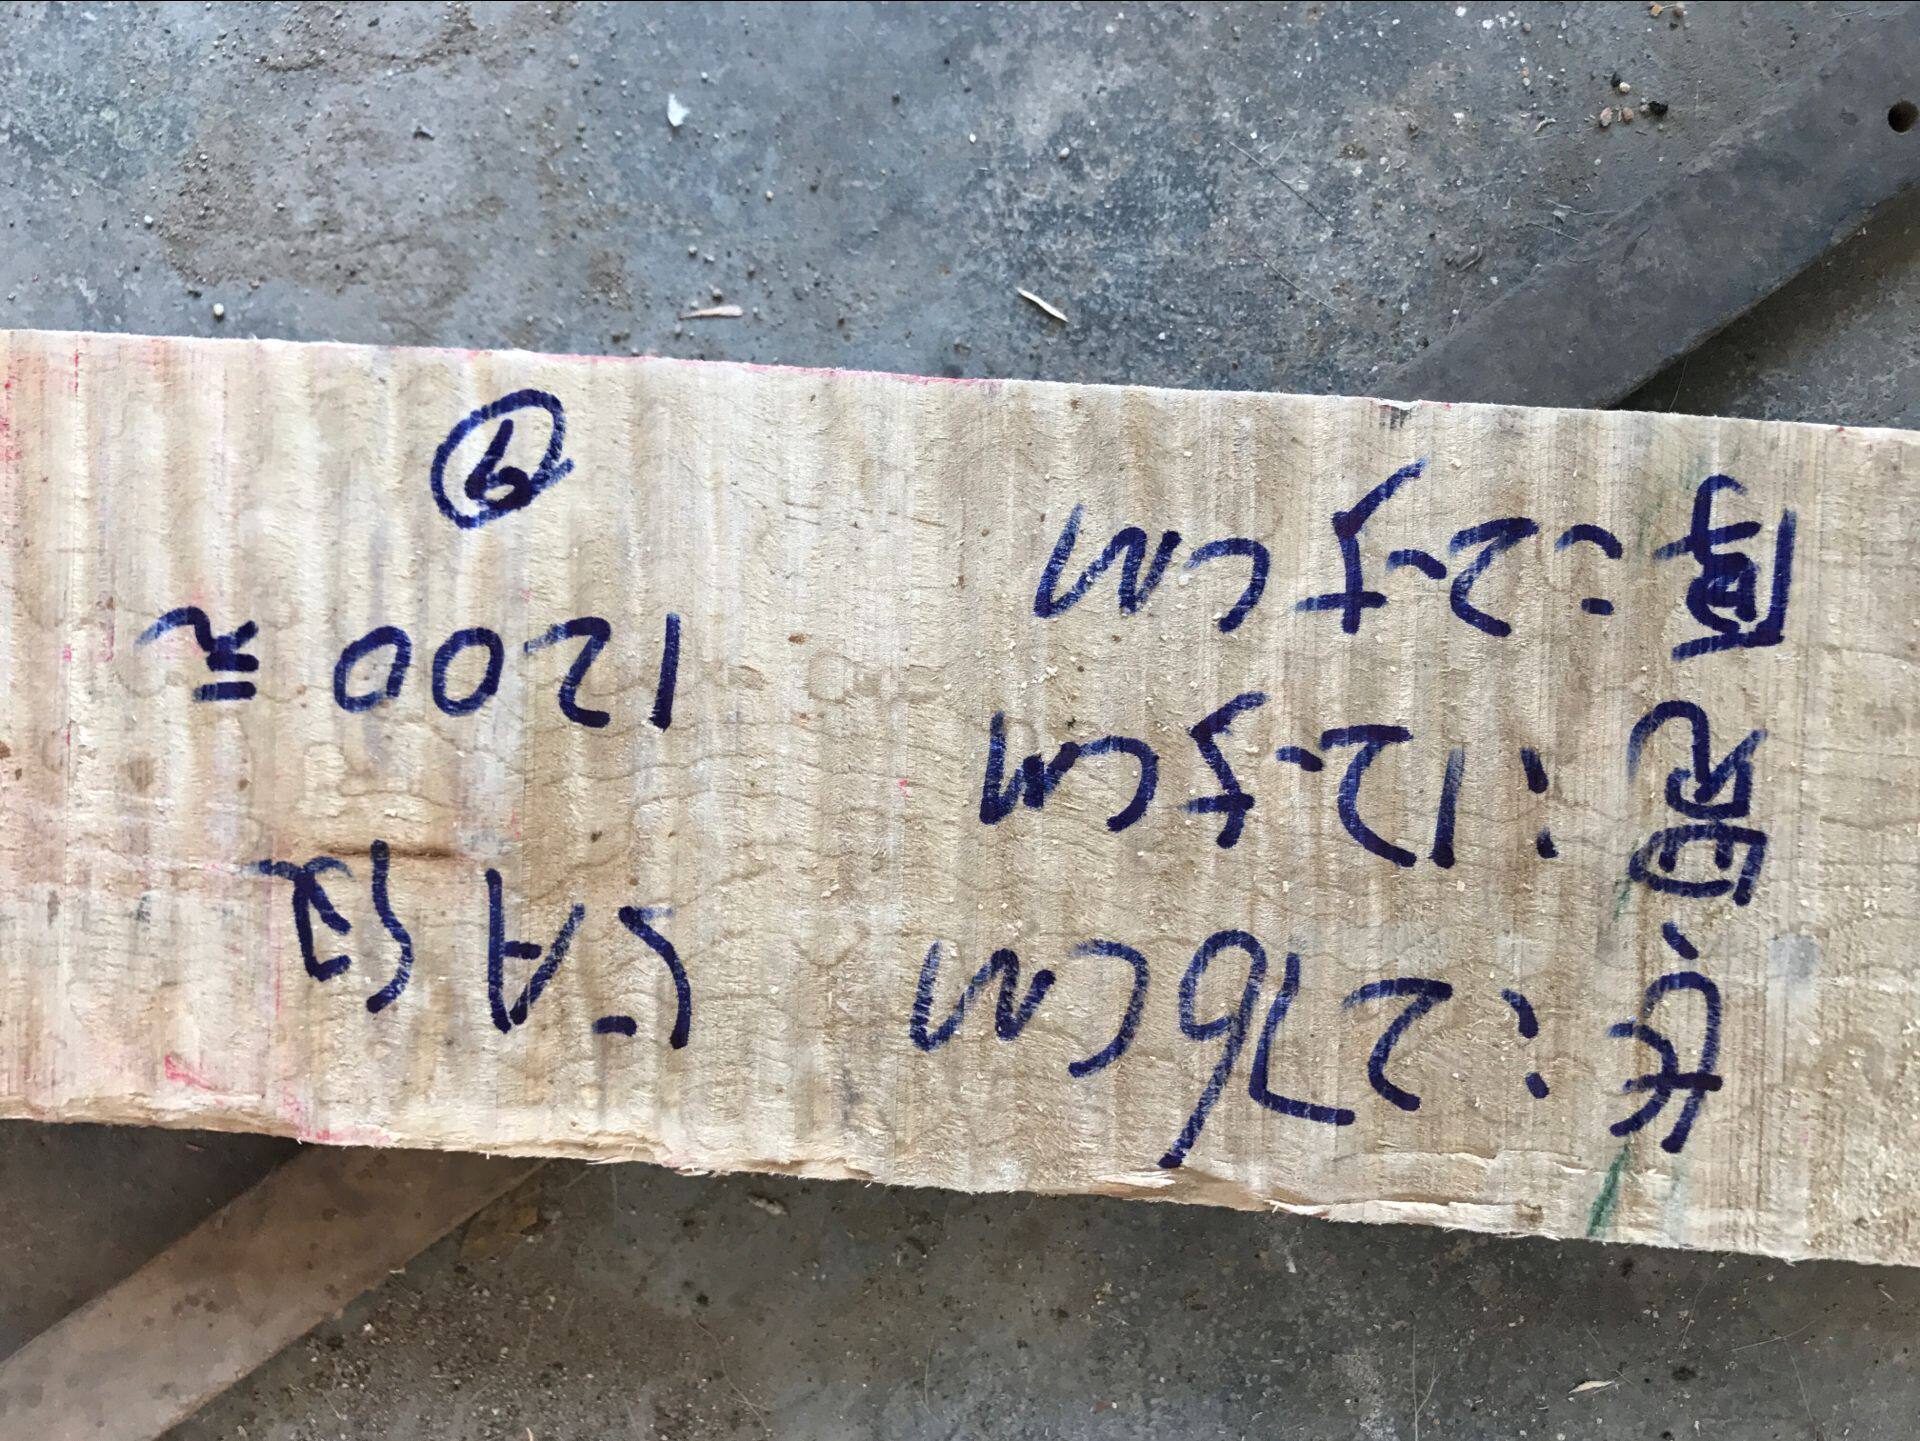 长:276CM
宽:12.5CM
厚:2.5CM
5A级
1200元
⑨